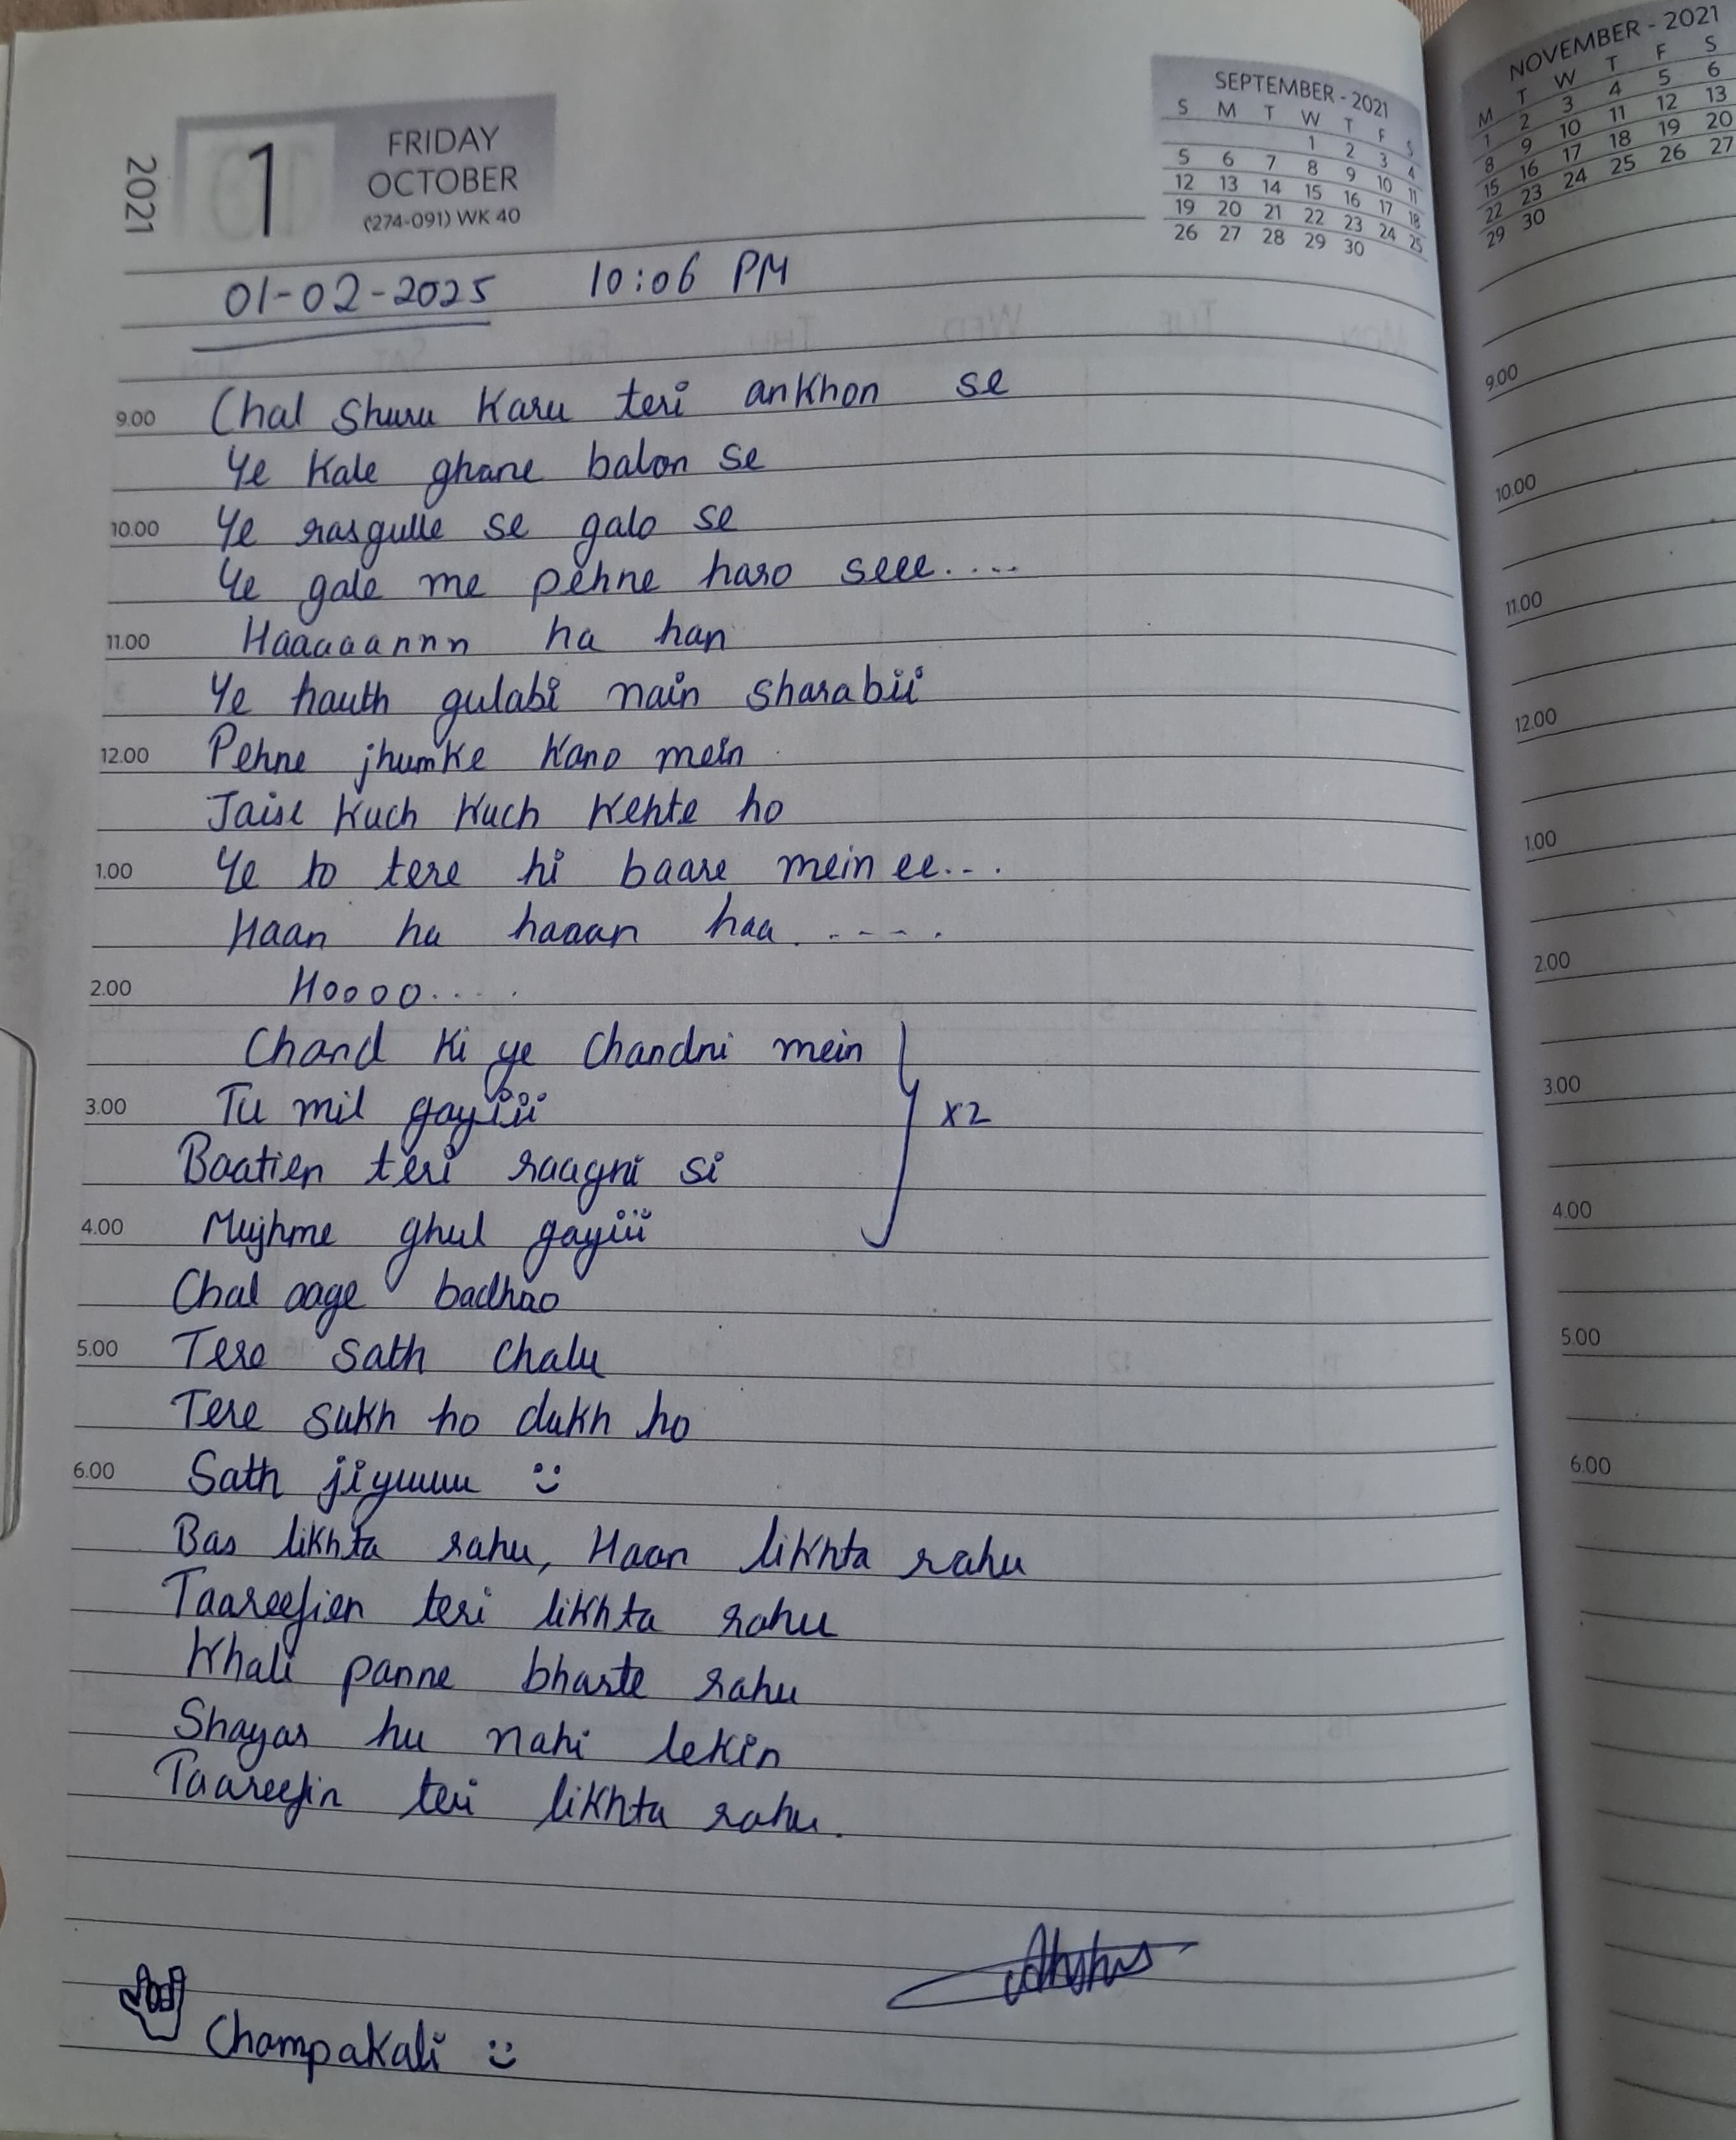 2021
1
FRIDAY
OCTOBER
(274-091) WK 40
SEPTEMBER - 2021
S M T W T F S
1 2 3 4
5 6 7 8 9 10 11
12 13 14 15 16 17 18
19 20 21 22 23 24 25
26 27 28 29 30
01-02-2025 10:06 PM
9.00 Chal Shuru Karu teri ankhon se
Ye Kale ghane balon se
10.00 Ye rasgulle se galo se
Ye gale me pehne haro seee....
11.00 Haaaaannn ha han
Ye hauth gulabi nain sharabii
12.00 Pehne jhumke Kano mein
Jaise Kuch Kuch Kehte ho
1.00 Ye to tere hi baare mein ee...
Haan ha haaan haa.....
2.00 Hoooo....
Chand Ki ye Chandni mein
3.00 Tu mil gayiii x2
Baatien teri raagni si
4.00 Mujhme ghul gayiii
Chal aage badhao
5.00 Tere sath chalu
Tere sukh ho dukh ho
6.00 Sath jiyuuu
Bas likhta rahu, Haan likhta rahu
Taareefien teri likhta rahu
Khali panne bharte rahu
Shayar hu nahi lekin
Taareefin teri likhta rahu.
Champakali
NOVEMBER - 2021
M T W T F S
1 2 3 4 5 6
8 9 10 11 12 13
15 16 17 18 19 20
22 23 24 25 26 27
29 30
9.00
10.00
11.00
12.00
1.00
2.00
3.00
4.00
5.00
6.00